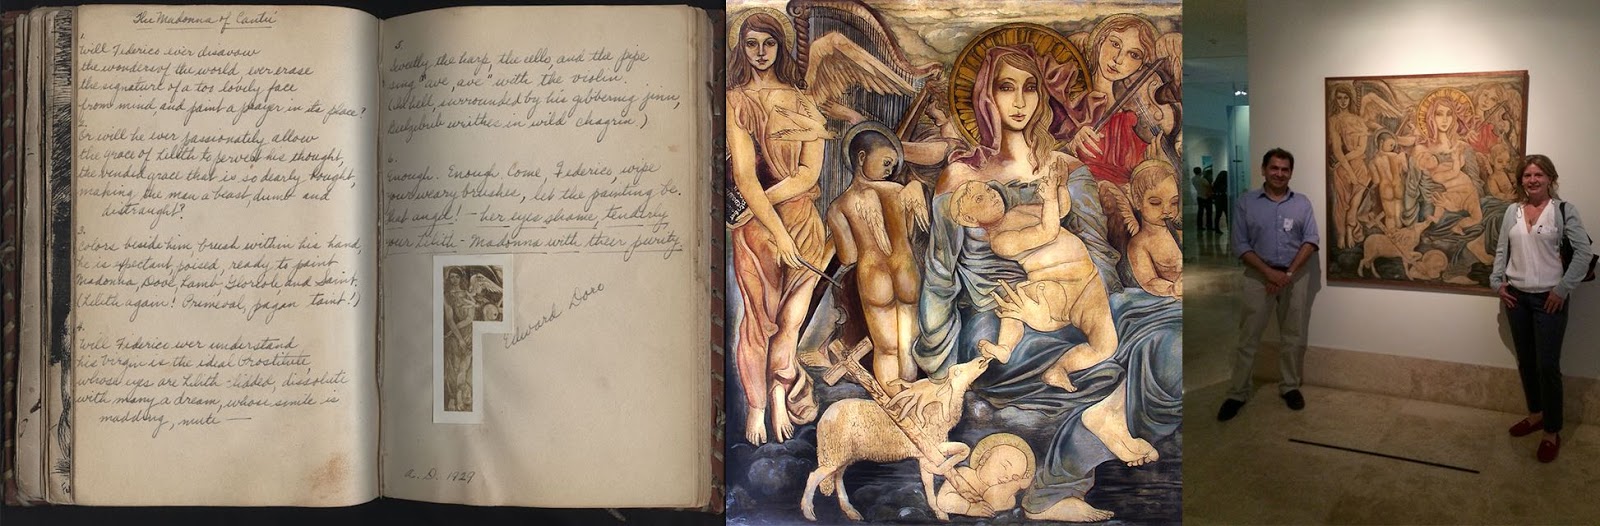 The Madonna of Cantú
1.
Will Federico ever disavow
the wonders of the world, ever erase
the signature of a too lovely face
from mind, and paint a prayer in its place?
2.
Or will he ever passionately allow
the grace of Lilith to pervert his thought,
the vendible grace that is so dearly bought,
making the man a beast, dumb and
distraught?
3.
Colors beside him, brush within his hand,
he is expectant, poised, ready to paint
Madonna, Dove, Lamb, Gloriole and Saint.
(Lilith again! Primeval, pagan taint!)
4.
Will Federico ever understand
his Virgin is the ideal Prostitute,
whose eyes are Lilith-lidded, dissolute
with many a dream, whose smile is
madding, mute —
5.
Sweetly the harp, the cello, and the pipe
sing "ave, ave" with the violin.
(In hell, surrounded by his gibbering jinn,
Belzebub writhes in wild chagrin)
6.
Enough. Enough. Come, Federico, wipe
your weary brushes, let the painting be.
that angel! — her eyes shame, tenderly
your Lilith-Madonna with their purity
Edward Doro
A.D. 1929